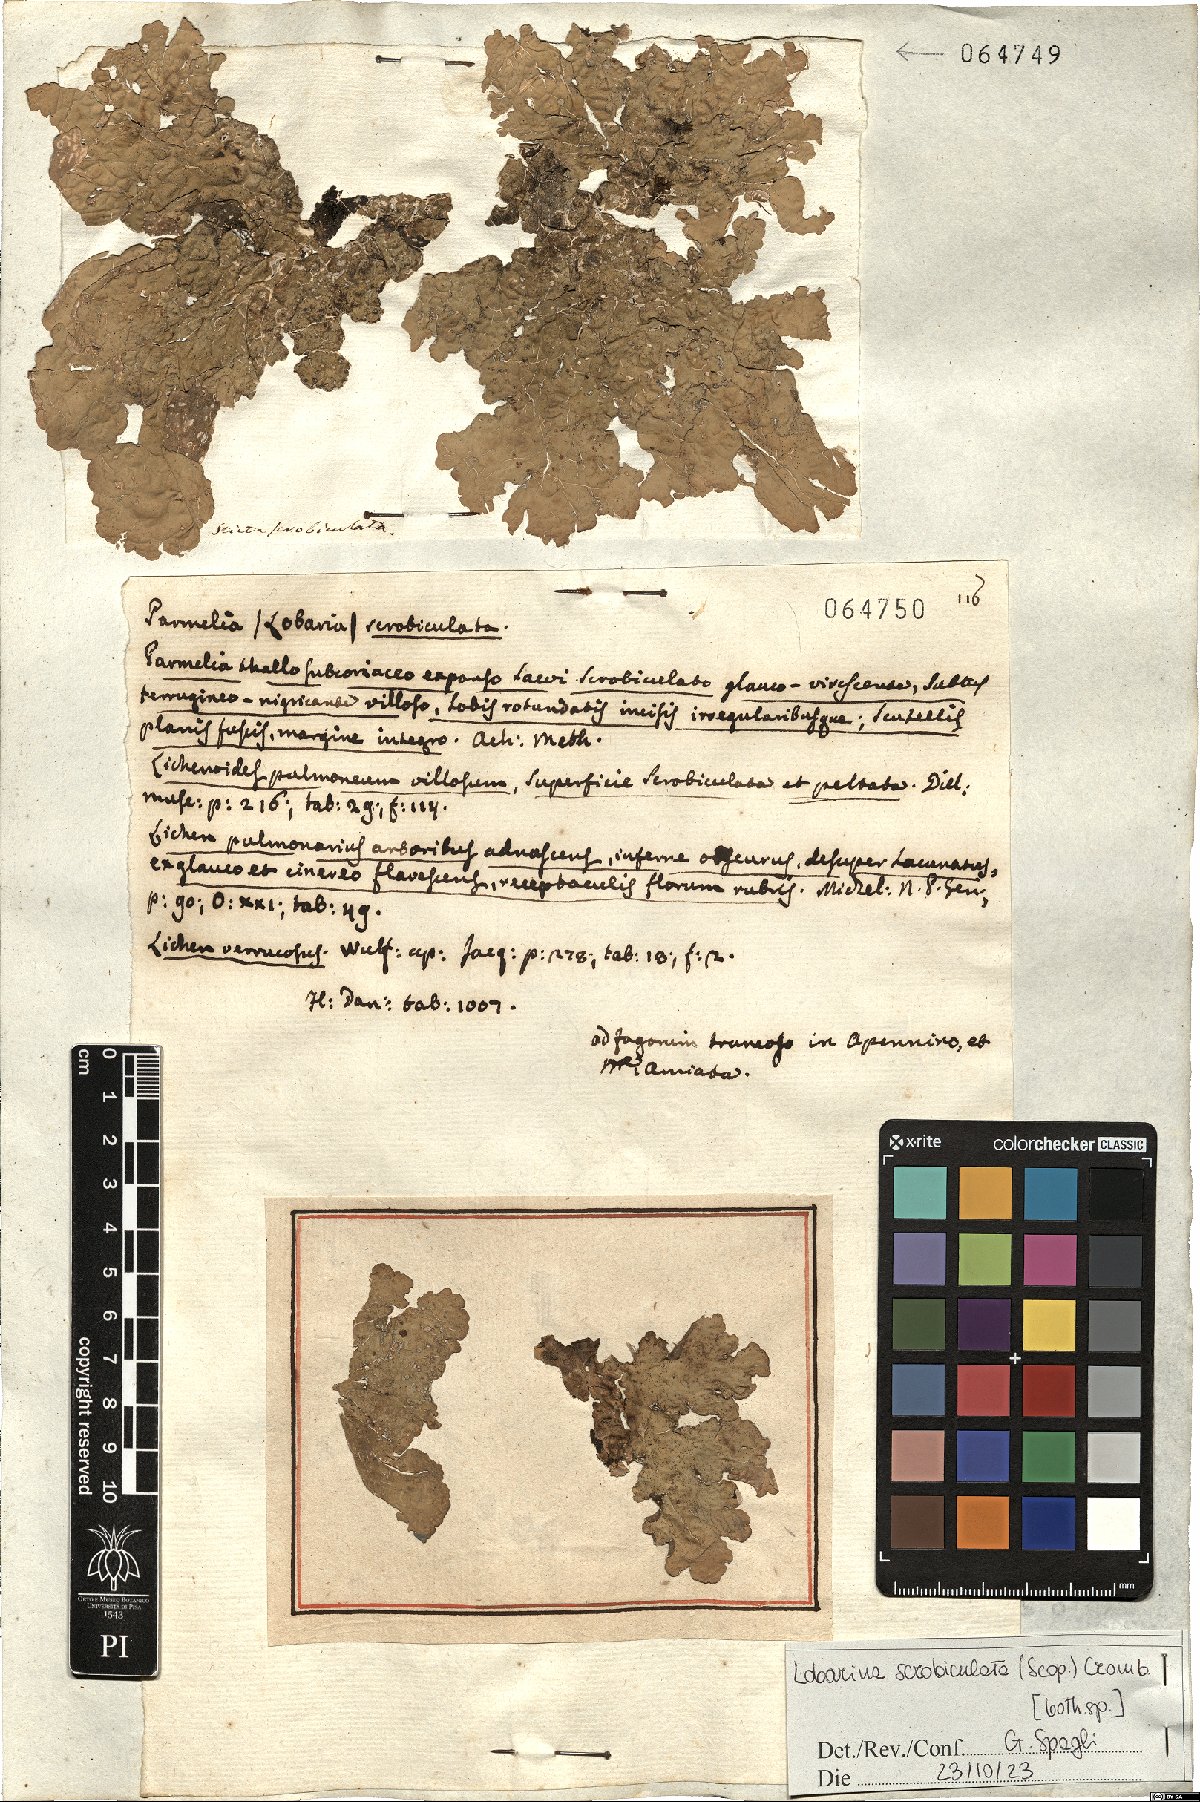 ← 064749
Sticta scrobiculata.
064750
116
Parmelia /Lobaria/ scrobiculata.
Parmelia thallo subcoriaceo expanso laevi scrobiculato glauco-virescente, subtus
ferrugineo-nigricante villoso, lobis rotundatis incisis irregularibusque; scutellis
planis fuscis, margine integro. Ach: Meth.
Lichenoides pulmoneum villosum, superficie scrobiculata et peltata. Dill:
musc: p: 216; tab: 29; f: 114.
Lichen pulmonarius arboribus adnascens, inferne obscurus, desuper lacunatus,
ex glauco et cinereo flavescens, receptaculis florum rubris. Michel: N. P. Gen,
p: 90; O: xxi; tab: 49.
Lichen verrucosus. Wulf: ap: Jacq: p: 278; tab: 18; f: 2.
Fl: Dan: tab: 1007.
ad fagorum truncos in Apennino, et
Amiata.
0 cm
1
2
3
4
5
6
7
8
9
10
copyright reserved
Orto e Museo Botanico
Università di Pisa
1543
PI
x-rite
colorchecker CLASSIC
mm
Lobarina scrobiculata (Scop.) Cromb.
[both sp.]
Det./Rev./Conf. G. Spagli
Die 23/10/23